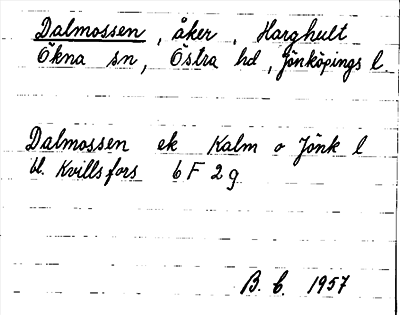 Dalmossen, åker, Harghult
Ökna sn, Östra hd, Jönköpings l
Dalmossen ek Kalm o Jönk l
bl. Kvillsfors 6 F 2 g
B. C. 1957